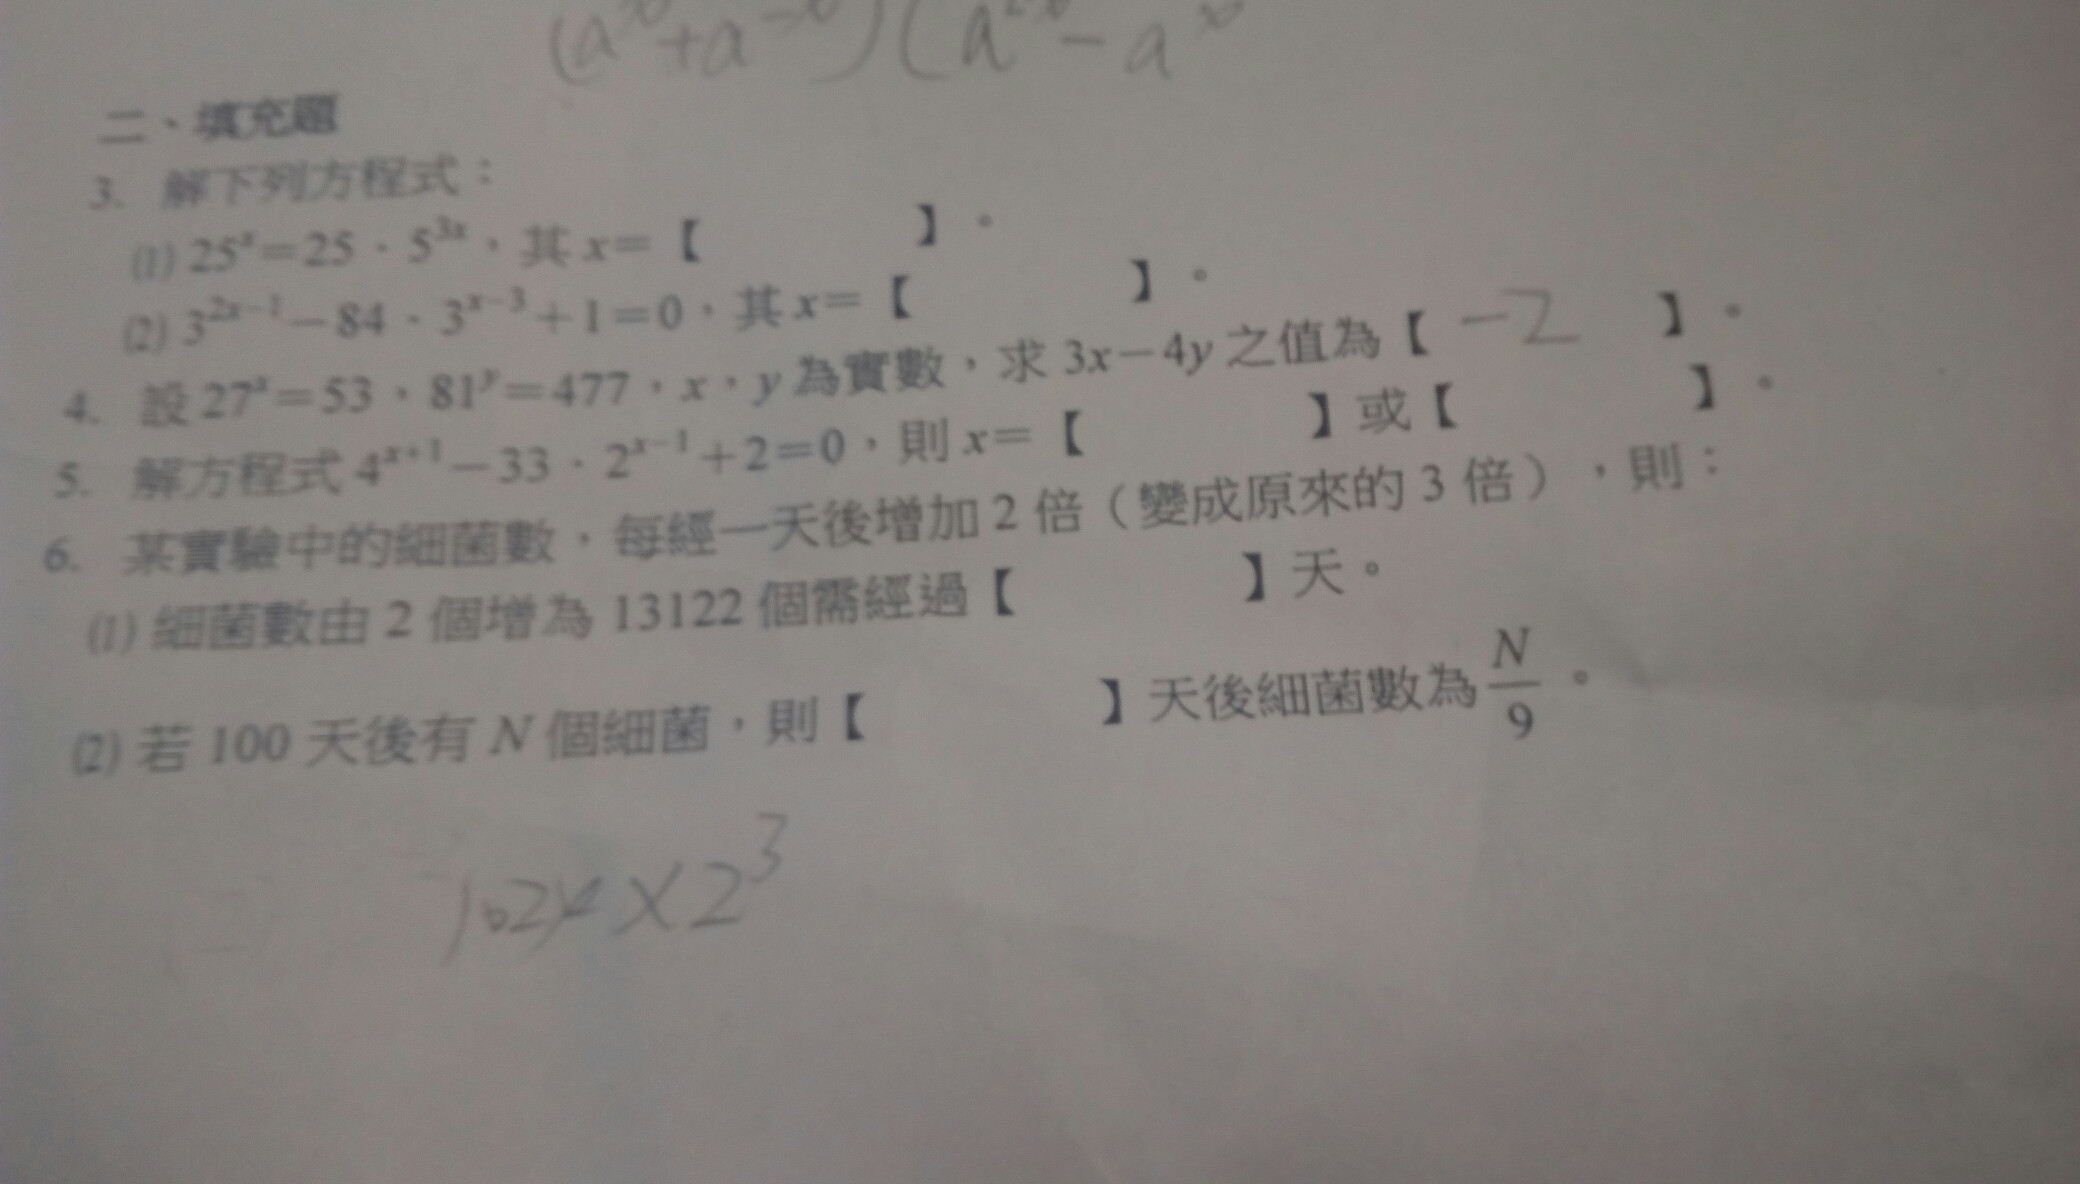 (aˣ+a⁻ˣ)(a²ˣ-aˣ
二、填充題
3. 解下列方程式：
(1) 25ˣ=25·5³ˣ，其 x=【 】。
(2) 3²ˣ⁻¹-84·3ˣ⁻³+1=0，其 x=【 】。
4. 設 27ˣ=53，81ʸ=477，x，y 為實數，求 3x-4y 之值為【 -2 】。
5. 解方程式 4ˣ⁺¹-33·2ˣ⁻¹+2=0，則 x=【 】或【 】。
6. 某實驗中的細菌數，每經一天後增加 2 倍（變成原來的 3 倍），則：
(1) 細菌數由 2 個增為 13122 個需經過【 】天。
(2) 若 100 天後有 N 個細菌，則【 】天後細菌數為 N/9。
1024×2³